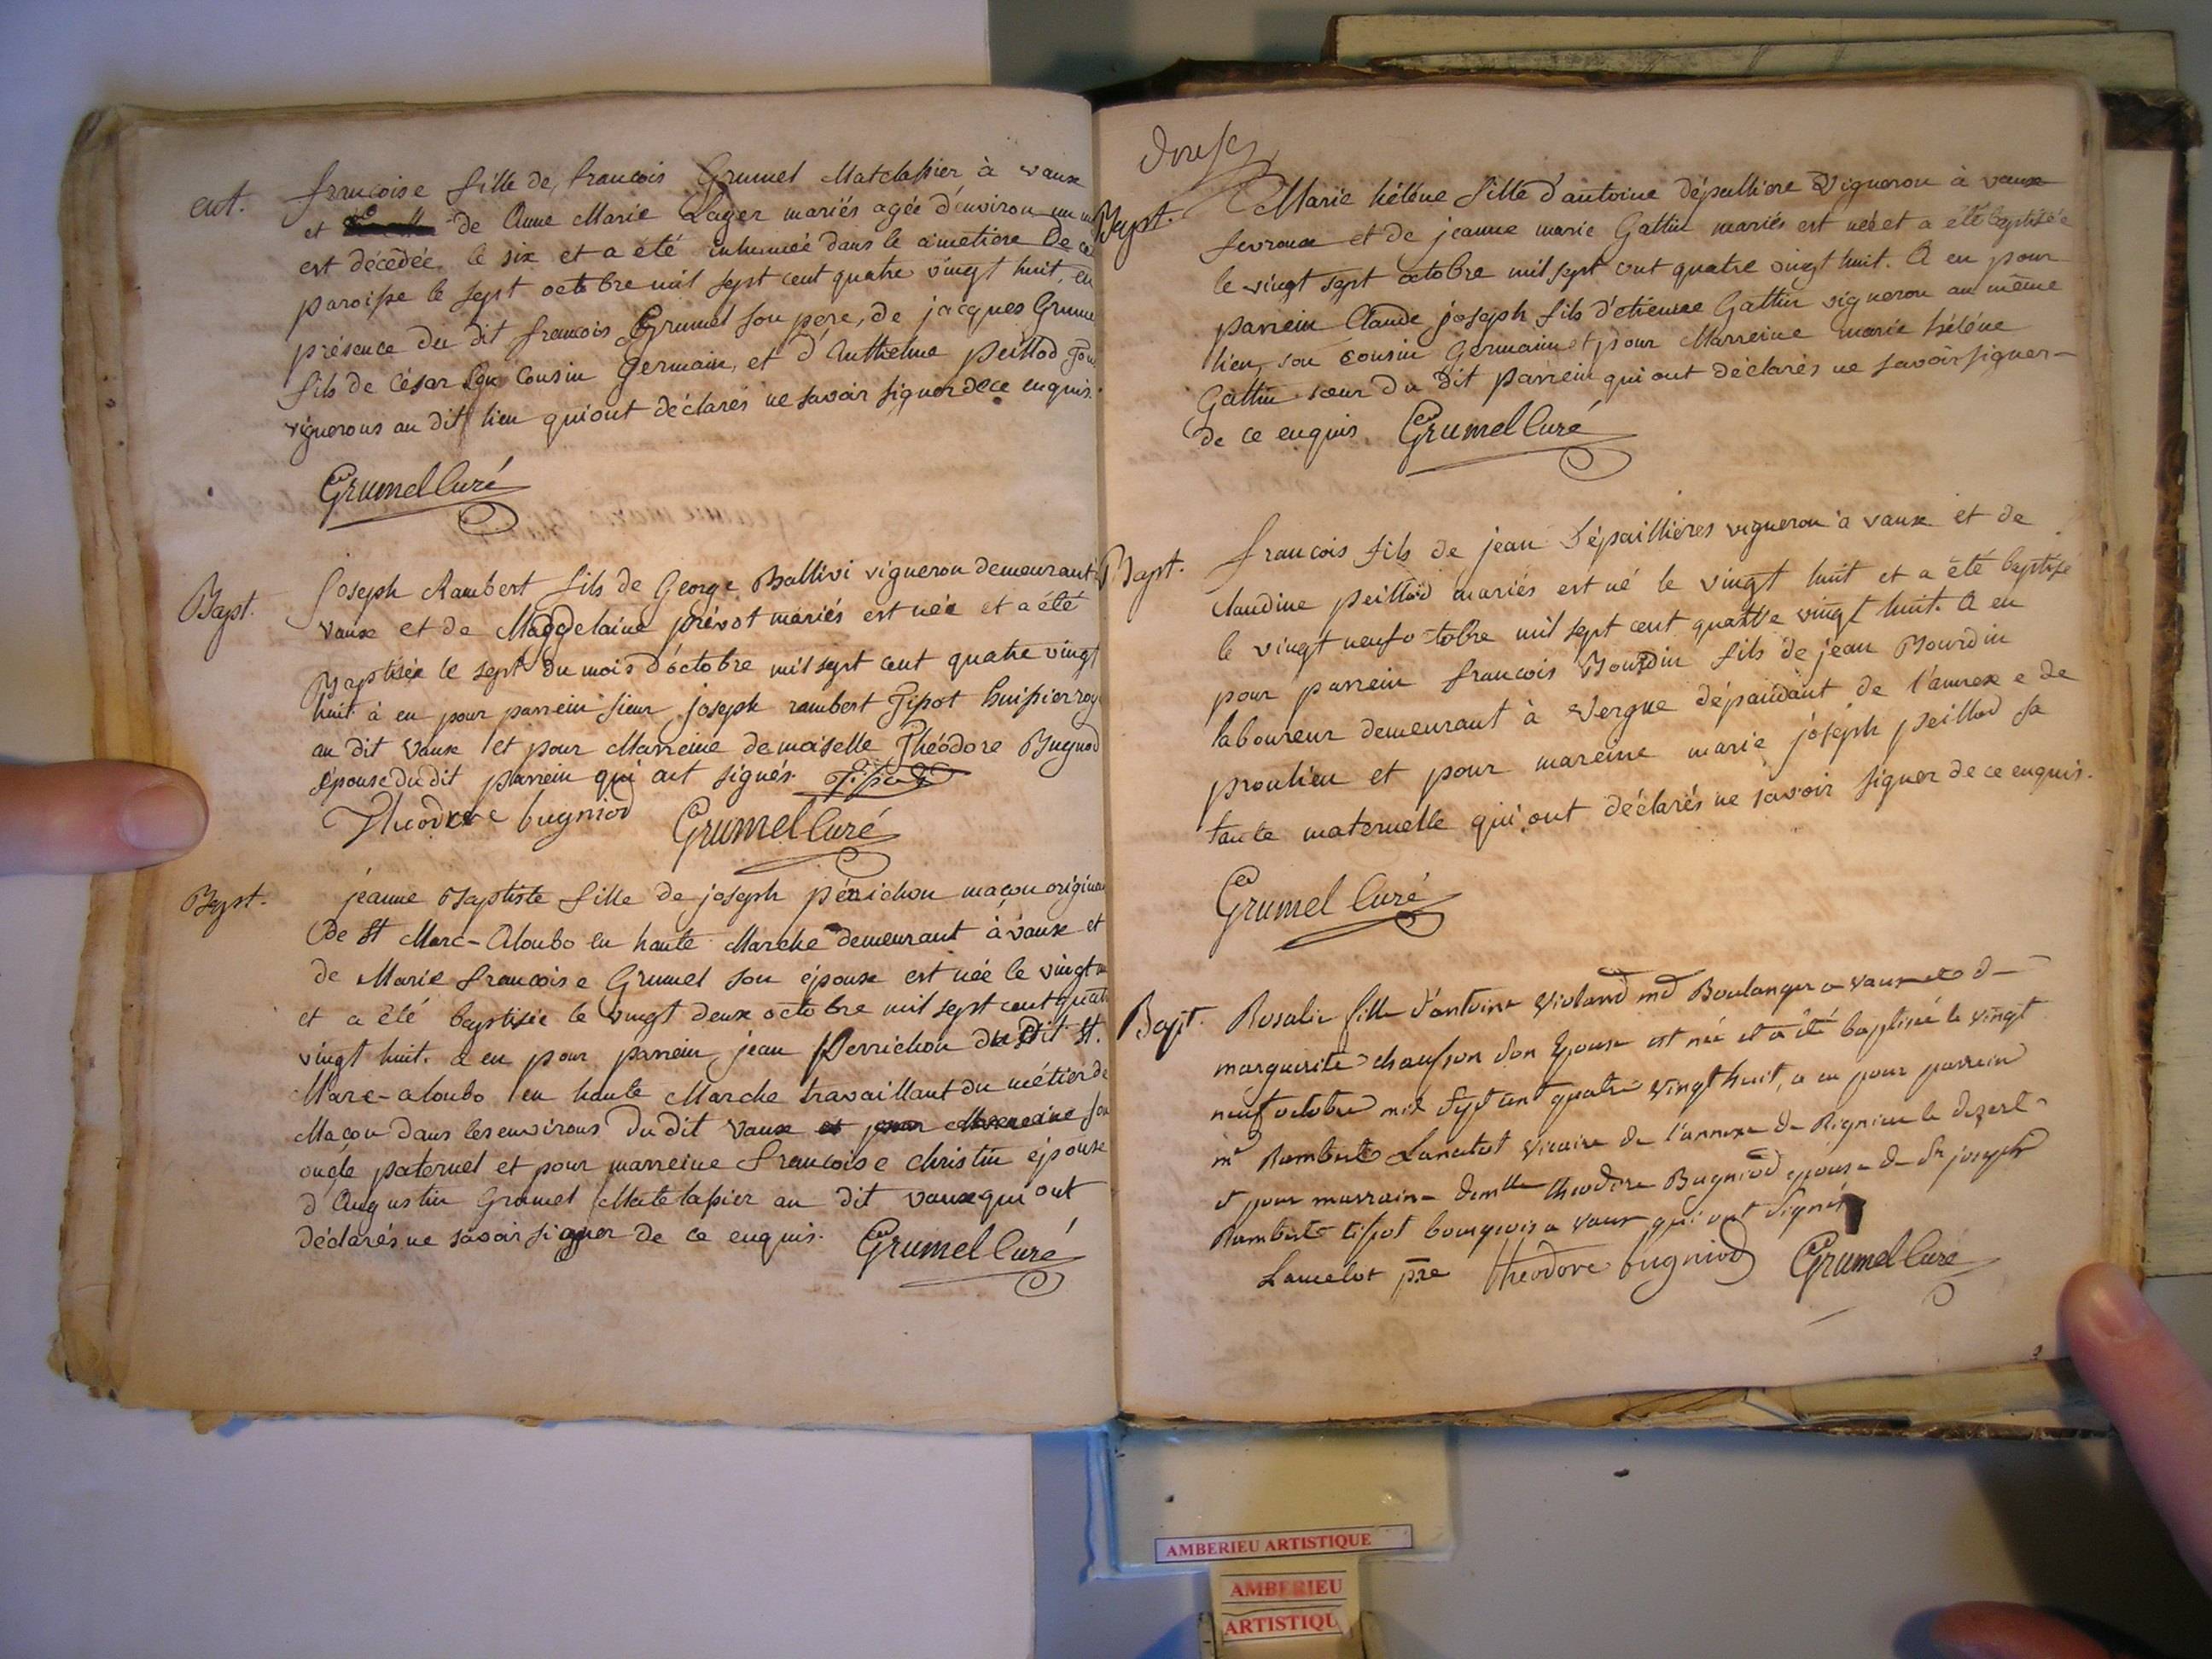 ent.
francoise fille de francois Grumel Matelassier à vaux
et de Anne Marie Lager mariés agée d'environ un
est décédée le six et a été inhumée dans le cimetiere De ce
paroisse le sept octobre mil sept cent quatre vingt huit en
présence du dit francois Grumel son pere, de jacques Grume
fils de César son Cousin Germain, et d'Anthelme peillod
vignerons au dit lieu qui ont déclarés ne savoir signer de ce enquis.
Grumel Curé
Bapt.
Joseph Rambert fils de George Ballivi vigneron demeurant
vaux et de Magdelaine prévot mariés est née et a été
Baptisée le sept du mois d'octobre mil sept cent quatre vingt
huit à eu pour parrein sieur joseph rambert Tipot huissier roy
au dit vaux et pour Marreine demoiselle Théodore Bugnod
épouse du dit parrein qui ont signés. Tipot
Theodore bugniod Grumel Curé
Bapt.
jeanne Baptiste fille de joseph périchon macon origina
de St Marc-Aloubo en haute Marche demeurant à vaux et
de Marie francoise Grumel son épouse est née le vingt
et a été baptisée le vingt deux octobre mil sept cent quatr
vingt huit. a eu pour parrein jean Perrichon du dit St.
Marc-aloubo en haute Marche travaillant du métier de
Maçon dans les environs du dit vaux et pour Marreine son
oncle paternel et pour marreine francoise christin épouse
d'Augustin Grumel Matelassier au dit vaux qui ont
déclarés ne savoir signer de ce enquis. Grumel Curé
Bapt.
Marie hélène fille d'antoine dépalliere Vigneron à vaux
fevroux et de jeanne marie Gattin mariés est née et a été baptisée
le vingt sept octobre mil sept cent quatre vingt huit. A eu pour
parrein Claude joseph fils d'etienne Gattin vigneron au même
lieu, son cousin Germain et pour Marreine marie hélène
Gattin sœur du dit parrein qui ont déclarés ne savoir signer-
de ce enquis Grumel Curé
Bapt.
francois fils de jean Dépaillières vigneron à vaux et de
claudine peillod mariés est né le vingt huit et a été baptisé
le vingt neuf octobre mil sept cent quatre vingt huit. A eu
pour parrein francois Bourdin fils de jean Bourdin
laboureur demeurant à Vergne dépandant de l'annexe de
proulieu et pour mareine marie joseph peillod sa
tante maternelle qui ont déclarés ne savoir signer de ce enquis.
Grumel Curé
Bapt.
Rosalie fille d'antoine Violand md Boulanger a vaux et de
marguerite chausson son Epouse est née et a été baptisée le vingt
neuf octobre mil sept cent quatre vingt huit, a eu pour parrein
mr Rambert Lancelot vicaire de l'annexe de Rignieu le dezert
et pour marraine demlle theodore Bugniod epouse de Sr joseph
Rambert tipot bourgeois a vaux qui ont signés
Lancelot pre theodore bugniod Grumel Curé
AMBERIEU ARTISTIQUE
AMBERIEU
ARTISTIQU